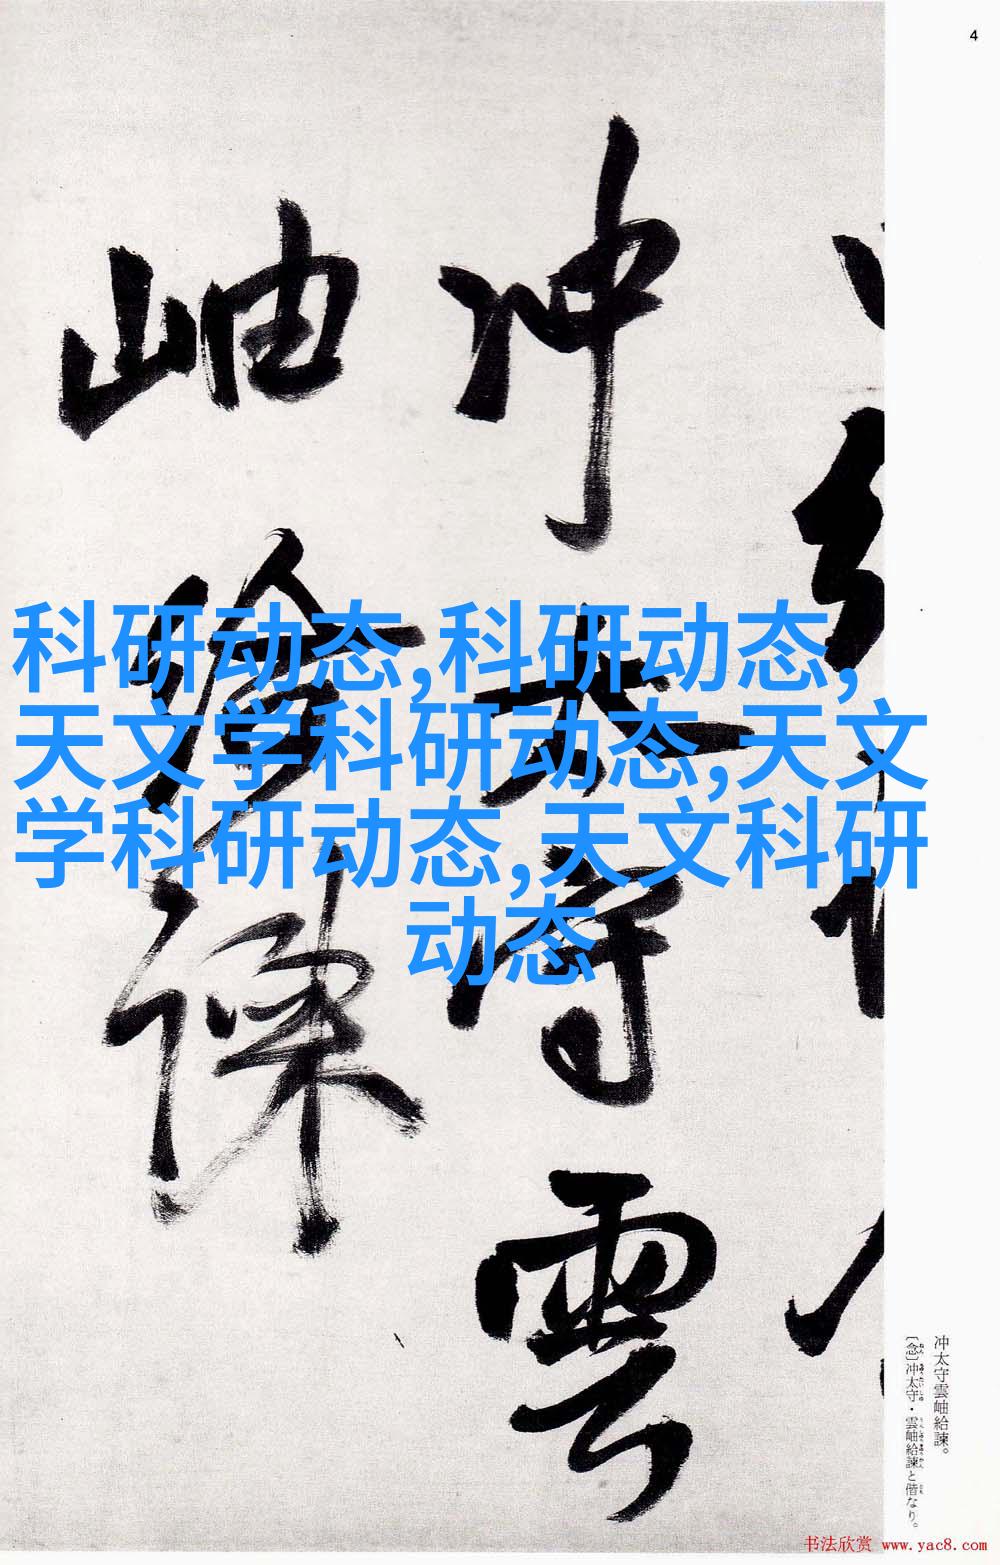 4
冲太守雲
岫給諫
科研动态,科研动态,
天文学科研动态,天文
学科研动态,天文科研
动态
冲太守雲岫給諫。
〔念〕冲太守・雲岫給諫と偕なり。
书法欣赏 www.yac8.com